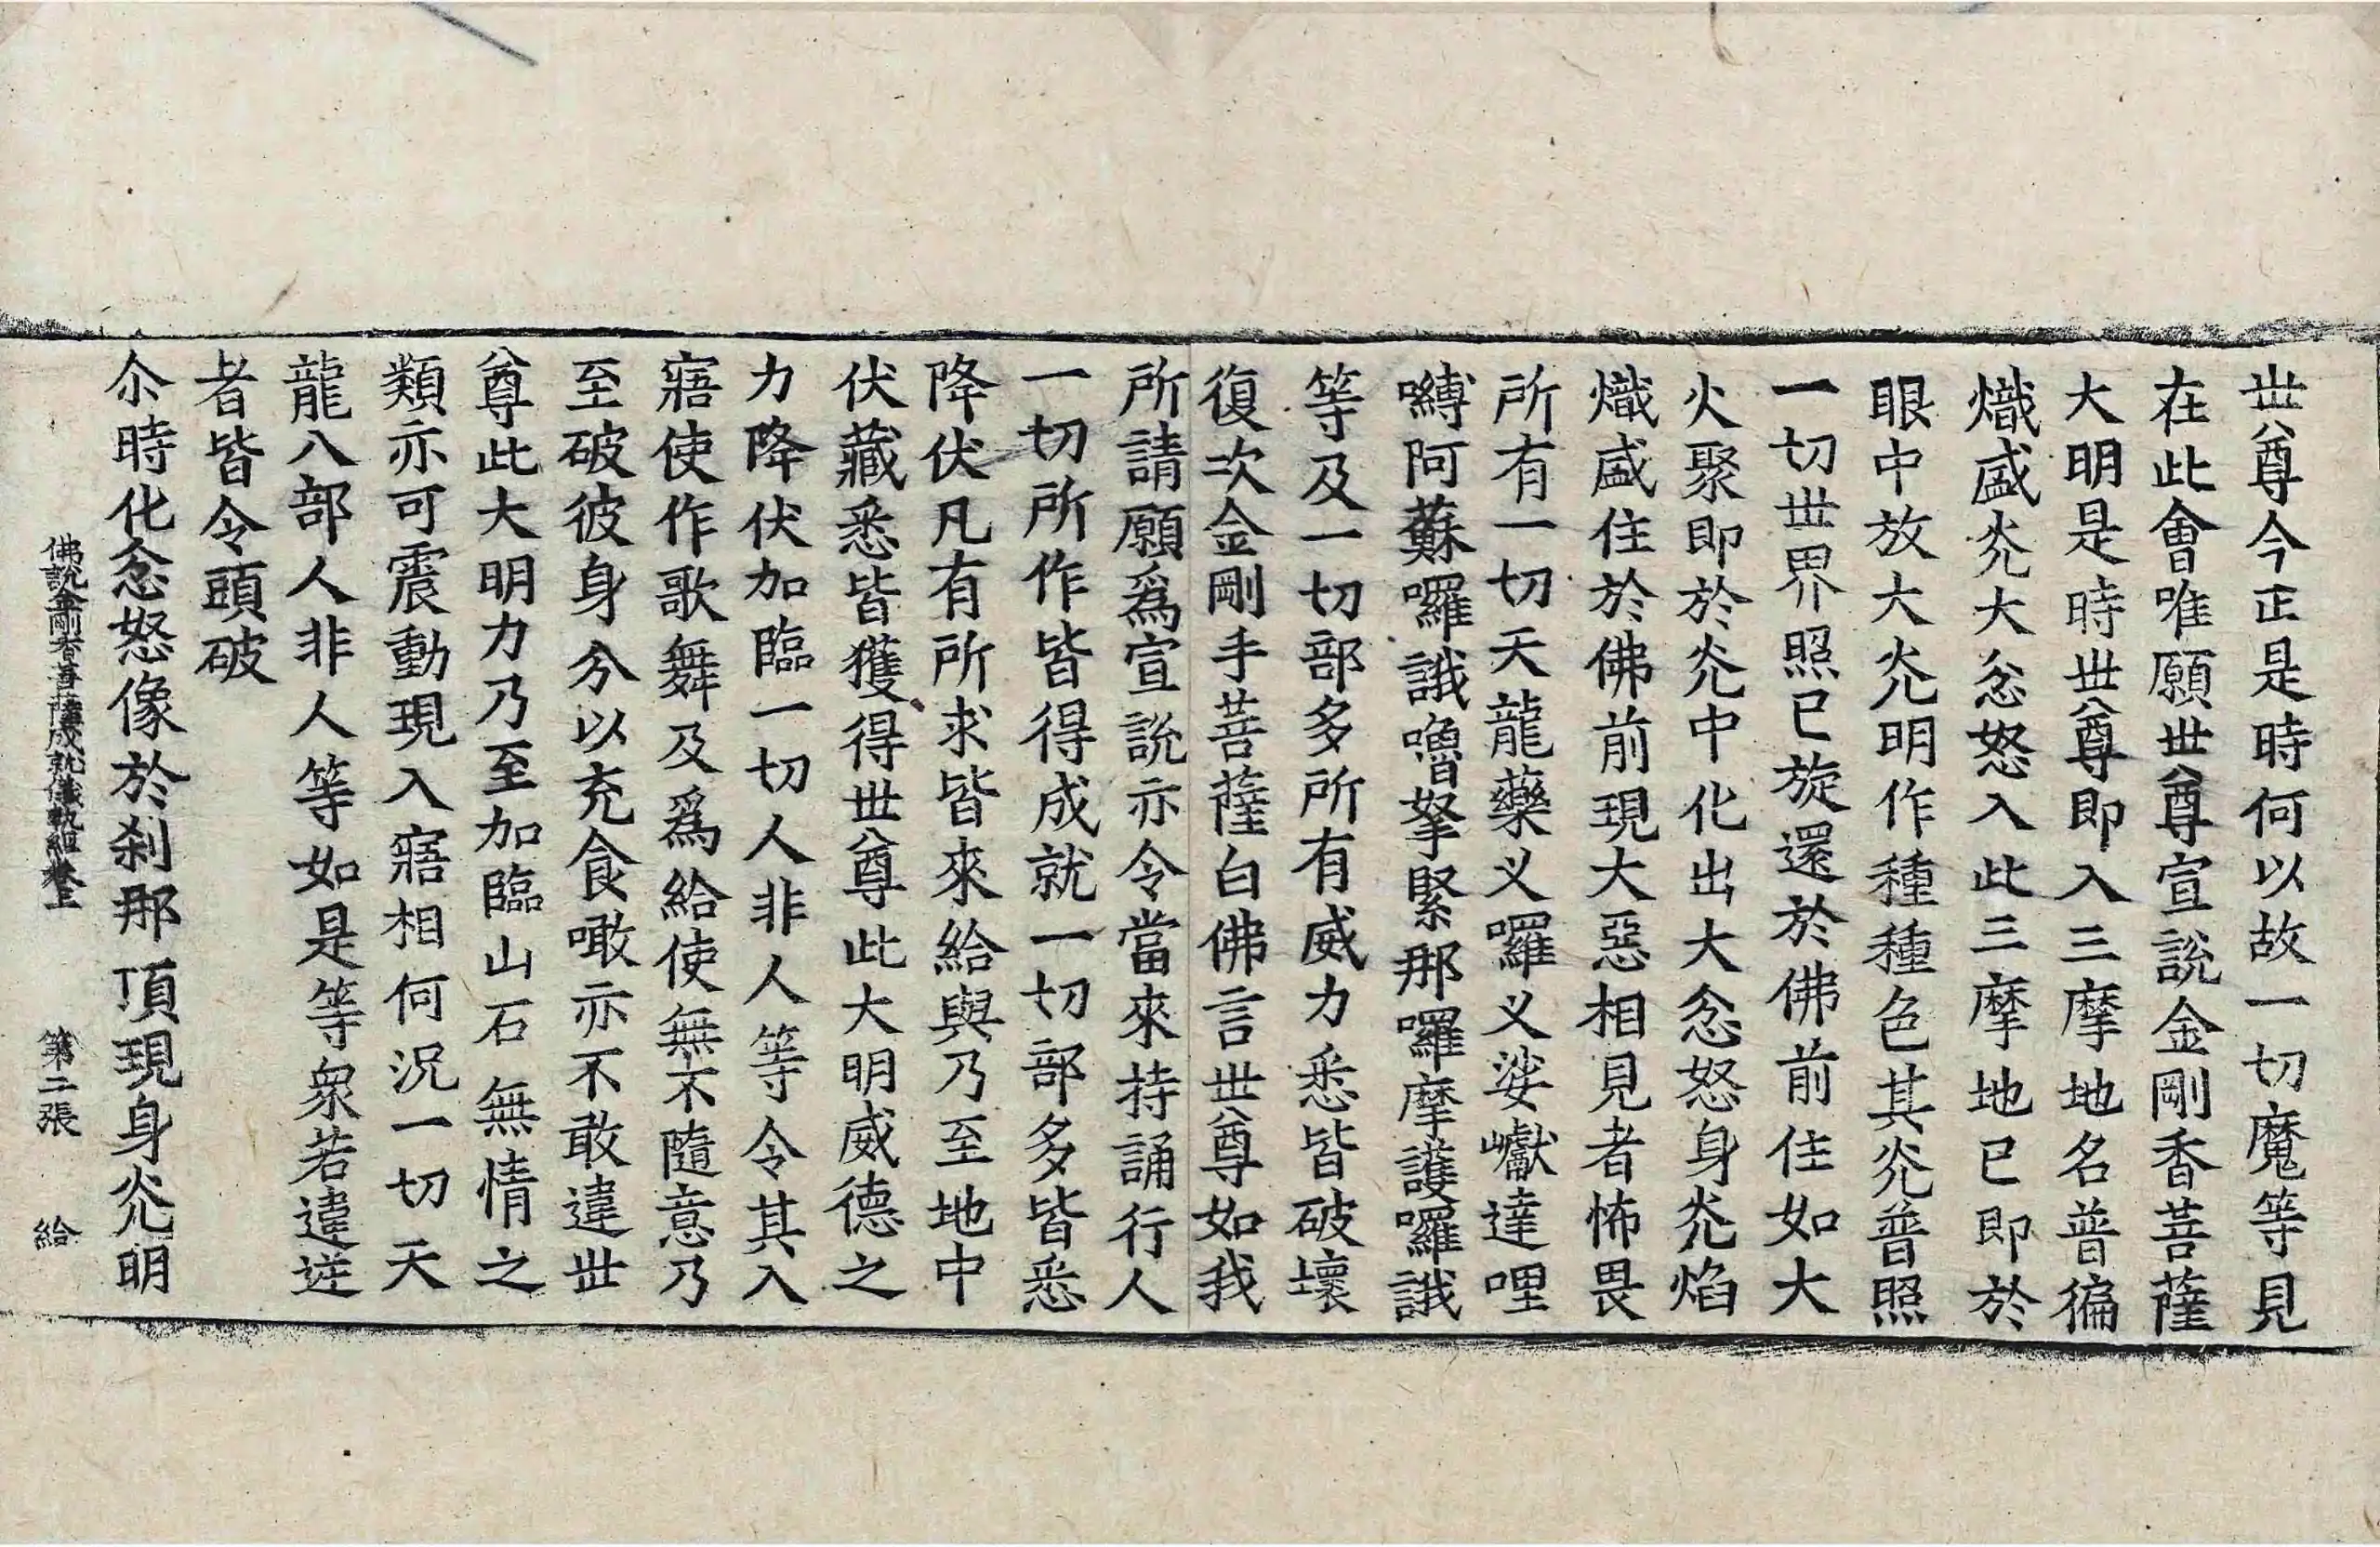 丗尊今正是時何以故一切魔等見
在此會唯願丗尊宣說金剛香菩薩
大明是時丗尊即入三摩地名普徧
熾盛灮大忿怒入此三摩地已即於
眼中放大灮明作種種色其灮普照
一切丗界照已旋還於佛前住如大
火聚即於灮中化出大忿怒身灮焰
熾盛住於佛前現大惡相見者怖畏
所有一切天龍藥义囉义娑巘達哩
嚩阿蘇囉誐嚕拏緊那囉摩護囉誐
等及一切部多所有威力悉皆破壞
復次金剛手菩薩白佛言丗尊如我
所請願爲宣說亦令當來持誦行人
一切所作皆得成就一切部多皆悉
降伏凡有所求皆來給與乃至地中
伏藏悉皆獲得丗尊此大明威德之
力降伏加臨一切人非人等令其入
寤使作歌舞及爲給使無不隨意乃
至破彼身分以充食噉亦不敢違丗
尊此大明力乃至加臨山石無情之
類亦可震動現入寤相何況一切天
龍八部人非人等如是等衆若違逆
者皆令頭破
尒時化忿怒像於刹那頂現身灮明
佛說金剛香菩薩成就儀軌經卷上 第二張 給